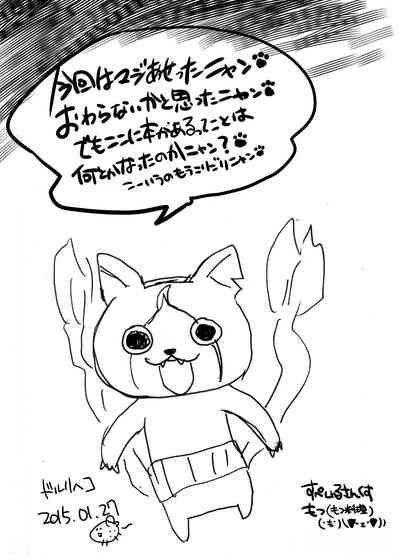 今回はマジあせったニャン
おわらないかと思ったニャン
でもここに本があるってことは
何とかなったのかニャン？
こーいうのもうこりごりニャン
2015.01.27
すぺしゃるさんくす
もつ(もつ料理)